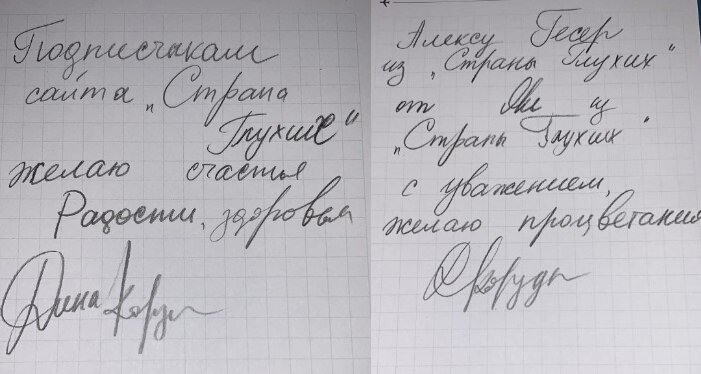 Подписчикам
сайта „Страна
Глухих"
желаю счастья
Радости, здоровья
Дина Корзун
Алексу Гесер
из „Страны Глухих"
от Яи из
„Страны Глухих"
с уважением,
желаю процветания